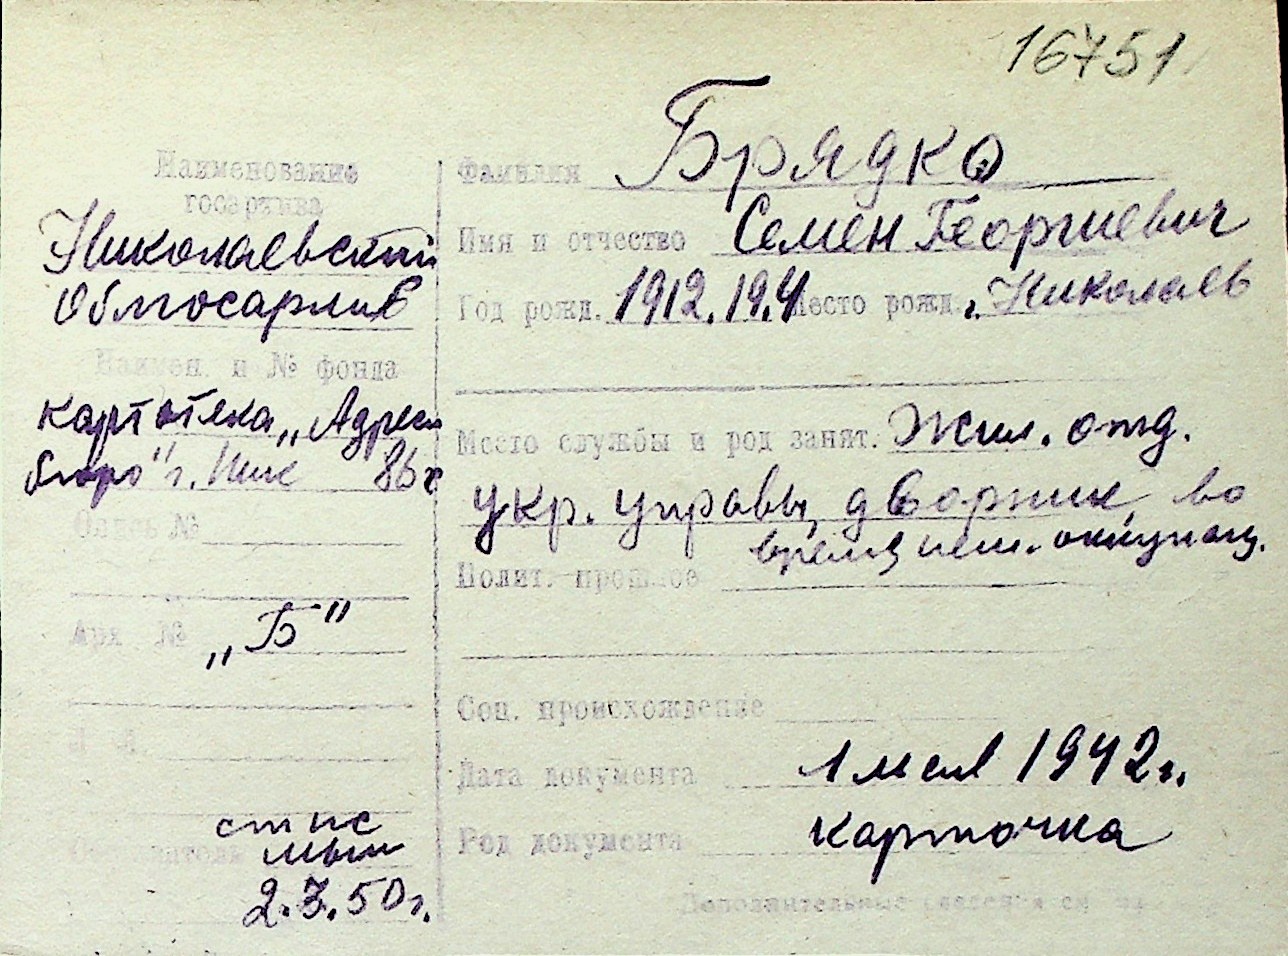 16751
Наименование
госархива
Николаевский
Облгосархив
Наимен. и № фонда
картотека „Адресн
бюро" г. Ник 86 г
Опись №
Арх №
„Б"
2.3.50 г.
Фамилия Брядко
Имя и отчество Семен Георгиевич
Год рожд. 1912.19.4 Место рожд. г. Николаев
Место службы и род занят. Жил. отд.
укр. управы, дворник, во
время нем. оккупац.
Полит. прошлое
Соц. происхождение
Дата документа 1 мая 1942 г.
Род документа карточка
Дополнительные сведения см